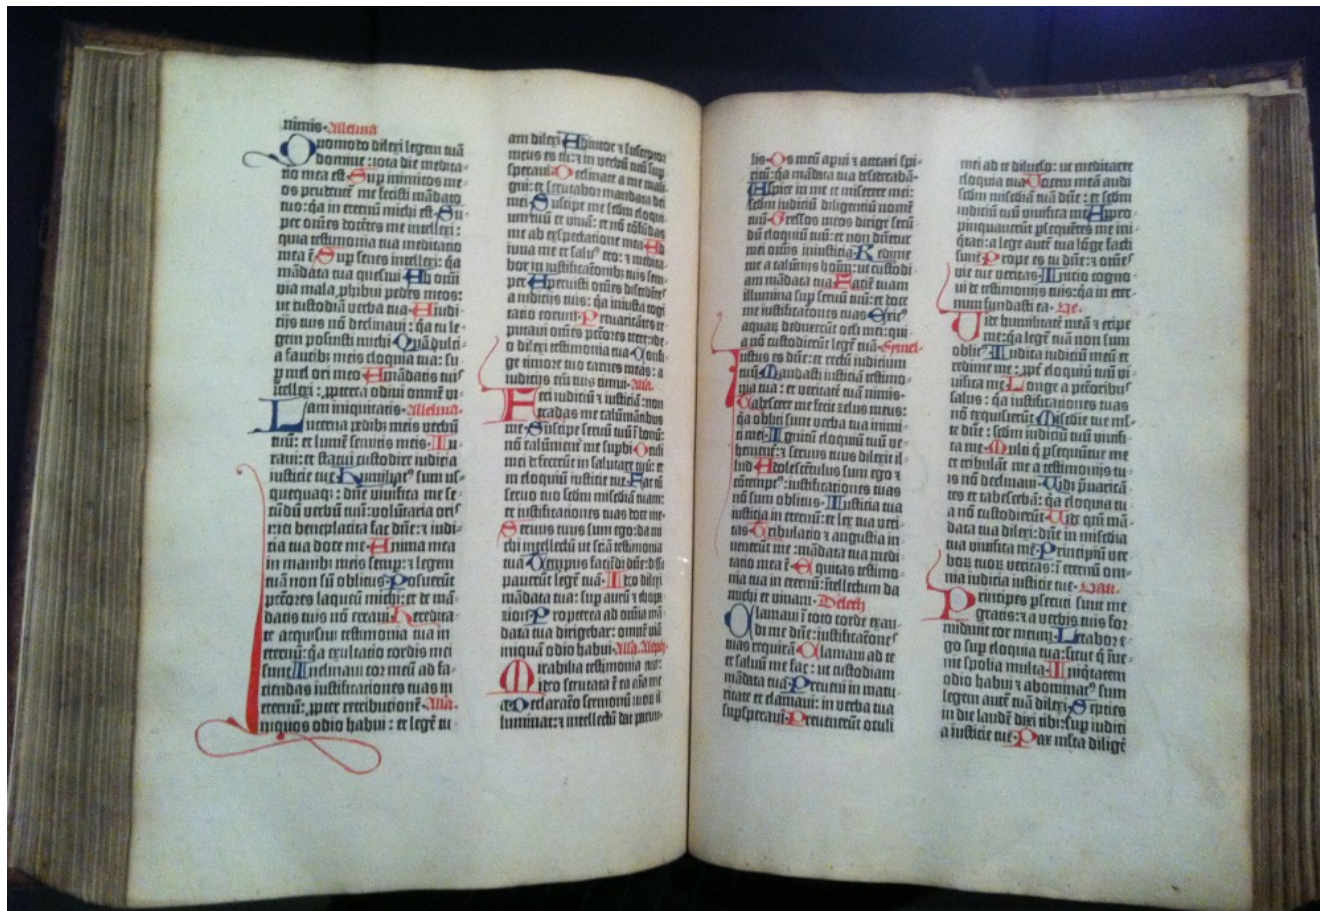 nimis. Alleluia
Quomodo dilexi legem tuā
domine: tota die medita-
tio mea est. Sup inimicos me-
os prudentē me fecisti mādato
tuo: q̄a in eternū michi est. Su-
per om̄es docētes me intellexi:
quia testimonia tua meditatio
mea ē. Sup senes intellexi: q̄a
mādata tua quesiui. Ab om̄i
via mala phibui pedes meos:
ut custodiā verba tua. A iudi-
cijs tuis nō declinaui: q̄a tu le-
gem posuisti michi. Quā dulci-
a faucibꝫ meis eloquia tua: su-
p mel ori meo. A mādatis tuis
ītellexi: ꝓpterea odiui omnē vi-
am iniquitatis. Alleluia.
Lucerna pedibꝫ meis verbū
tuū: et lumē semitis meis. Iu-
raui: et statui custodire iudicia
iusticie tue. Humiliatꝰ sum us-
quequaqꝫ: dn̄e viuifica me se-
cūdū verbū tuū. Voluntaria oris
mei beneplacita fac dn̄e: ⁊ iudi-
cia tua doce me. Anima mea
in manibꝫ meis semp: ⁊ legem
tuā non sū oblitus. Posuerūt
pctōres laqueū michi: et de mā-
datis tuis nō erraui. Heredita-
te acquisiui testimonia tua in
eternū: q̄a exultatio cordis mei
sunt. Inclinaui cor meū ad fa-
ciendas iustificationes tuas in
eternū: ꝓpter retributionē. Alla.
Iniquos odio habui: et legē tu-
am dilexi. Adiutor ⁊ susceptor
meus es tu: ⁊ in verbū tuū sup
speraui. Declinate a me mali-
gni: et scrutabor mandata dei
mei. Suscipe me scd̄m eloqui-
um tuū et viuā: et nō cōfūdas
me ab expectatione mea. Ad-
iuua me et saluꝰ ero: ⁊ medita-
bor in iustificationibꝫ tuis sem-
per. Spreuisti om̄es discedētes
a iudicijs tuis: q̄a iniusta cogi-
tatio eorum. Preuaricātes re-
putaui om̄es pctōres terre: ide-
o dilexi testimonia tua. Confi-
ge timore tuo carnes meas: a
iudicijs em̄ tuis timui. Alla.
Feci iudiciū ⁊ iusticiā: non
tradas me calūniantibus
me. Suscipe seruū tuū ī bonū:
nō calūnientē me supbi. Oculi
mei defecerūt in salutare tuū: et
in eloquiū iusticie tue. Fac cū
seruo tuo scd̄m misc̄diā tuam:
et iustificationes tuas doce me.
Seruus tuus sum ego: da mi-
chi intellectū ut sciā testimonia
tua. Tempus faciēdi dn̄e: dissi-
pauerūt legē tuā. Ideo dilexi
mādata tua: sup aurū ⁊ thopa-
zion. Propterea ad om̄ia mā-
data tua dirigebar: omnē viā
iniquā odio habui. Alla. Aleph.
Mirabilia testimonia tua:
ideo scrutata ē ea aīa me-
a. Declaratio sermonū tuoꝝ il-
luminat: ⁊ intellectū dat paruu-
lis. Os meū aperui ⁊ attraxi spi-
ritū: q̄a mādata tua desiderabā.
Aspice in me et miserere mei:
scd̄m iudiciū diligentiū nomē
tuū. Gressos meos dirige scd̄m
eloquiū tuū: et non dn̄etur
mei om̄is iniusticia. Redime
me a calūnijs hoīm: ut custodi-
am mādata tua. Faciē tuam
illumina sup seruū tuū: et doce
me iustificationes tuas. Exitꝰ
aquaꝝ deduxerūt oculi mei: qui-
a nō custodierūt legē tuā.
Iustus es dn̄e: et rectū iudicium
tuū. Mandasti iusticiā testimo-
nia tua: et veritatē tuā nimis.
Tabescere me fecit zelus meus:
q̄a obliti sunt verba tua inimi-
ci mei. Ignitū eloquiū tuū ve-
hemēter: ⁊ seruus tuus dilexit il-
lud. Adolescētulus sum ego ⁊
cōtemptꝰ: iustificationes tuas
nō sum oblitus. Iusticia tua
iusticia in eternū: et lex tua veri-
tas. Tribulatio ⁊ angustia in-
uenerūt me: mādata tua medi-
tatio mea ē. Equitas testimo-
nia tua in eternū: ītellectum da
michi et viuam. Delech
Clamaui ī toto corde exau-
di me dn̄e: iustificationes
tuas requirā. Clamaui ad te
et saluū me fac: ut custodiam
mādata tua. Preueni in matu-
ritate et clamaui: in verba tua
supsperaui. Preuenerūt oculi
mei ad te diluculo: ut meditarer
eloquia tua. Vocem meā audi
scd̄m misc̄diā tuā dn̄e: et scd̄m
iudiciū tuū viuifica me. Appro-
pinquauerūt psequētes me ini-
q̄tati: a lege autē tua lōge facti
sunt. Prope es tu dn̄e: ⁊ om̄es
vie tue veritas. Initio cogno-
ui de testimonijs tuis: q̄a in eter-
num fundasti ea.
Vide humilitatē meā ⁊ eripe
me: q̄a legē tuā non sum
oblitꝰ. Iudica iudiciū meū et
redime me: ꝓpt̄ eloquiū tuū vi-
uifica me. Longe a pctōribus
salus: q̄a iustificationes tuas
nō exquisierūt. Misc̄die tue ml̄-
te dn̄e: scd̄m iudiciū tuū viuifi-
ca me. Multi q̄ psequūtur me
et tribulāt me: a testimonijs tu-
is nō declinaui. Vidi p̄uaricā-
tes et tabescebā: q̄a eloquia tu-
a nō custodierūt. Vide qm̄ mā-
data tua dilexi: dn̄e in misc̄dia
tua viuifica me. Principiū ver-
boꝝ tuoꝝ veritas: ī eternū om-
nia iudicia iusticie tue.
Principes psecuti sunt me
gratis: ⁊ a verbis tuis for-
midauit cor meum. Letabor e-
go sup eloquia tua: sicut q̄ īue-
nit spolia multa. Iniq̄tatem
odio habui ⁊ abominatꝰ sum
legem autē tuā dilexi. Septies
in die laudē dixi tibi: sup iudici-
a iusticie tue. Pax ml̄ta diligē-